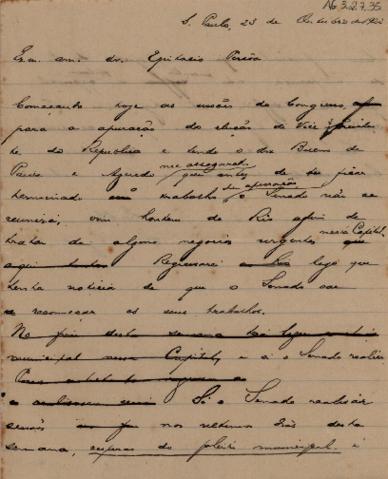 A6 3.2.7.35
S. Paulo, 23 de Outubro de
Exm. am. dr. Epitacio Pessôa
Começando hoje as sessões do Congresso,
para a apuração da eleição de Vice presiden-
te da Republica e tendo o dr. Bueno de
Paiva e Azeredo me assegurado que antes de
terminado trabalho da apuração o Senado não se
reuniria, vim hontem do Rio afim de
tratar de alguns negocios urgentes nesta Capital. que
aqui tenho Regressarei logo que
tenha noticia de que o Senado vae
recomeçar os seus trabalhos.
No fim desta semana
municipal nessa Capital, e si o Senado
Só o Senado realisar
sessões nos ultimos dias desta
semana, vesperas do pleito municipal. é